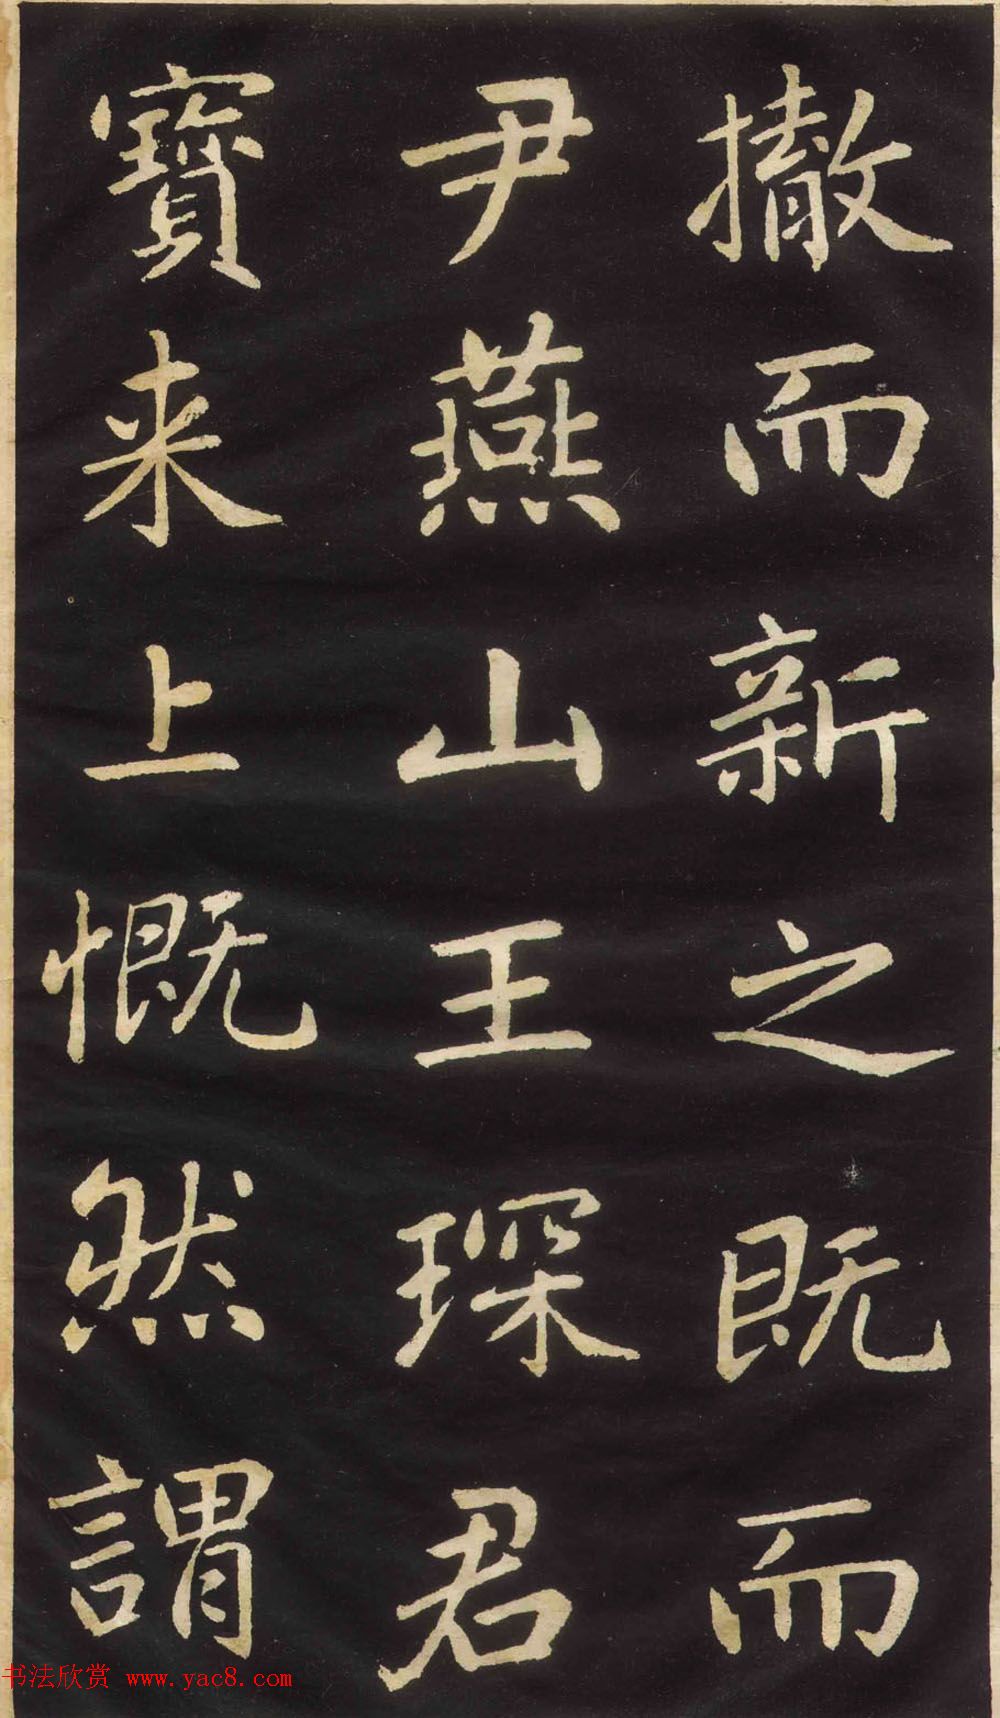 撤而新之既而
尹燕山王琛君
寶来上慨然謂
书法欣赏 www.yac8.com